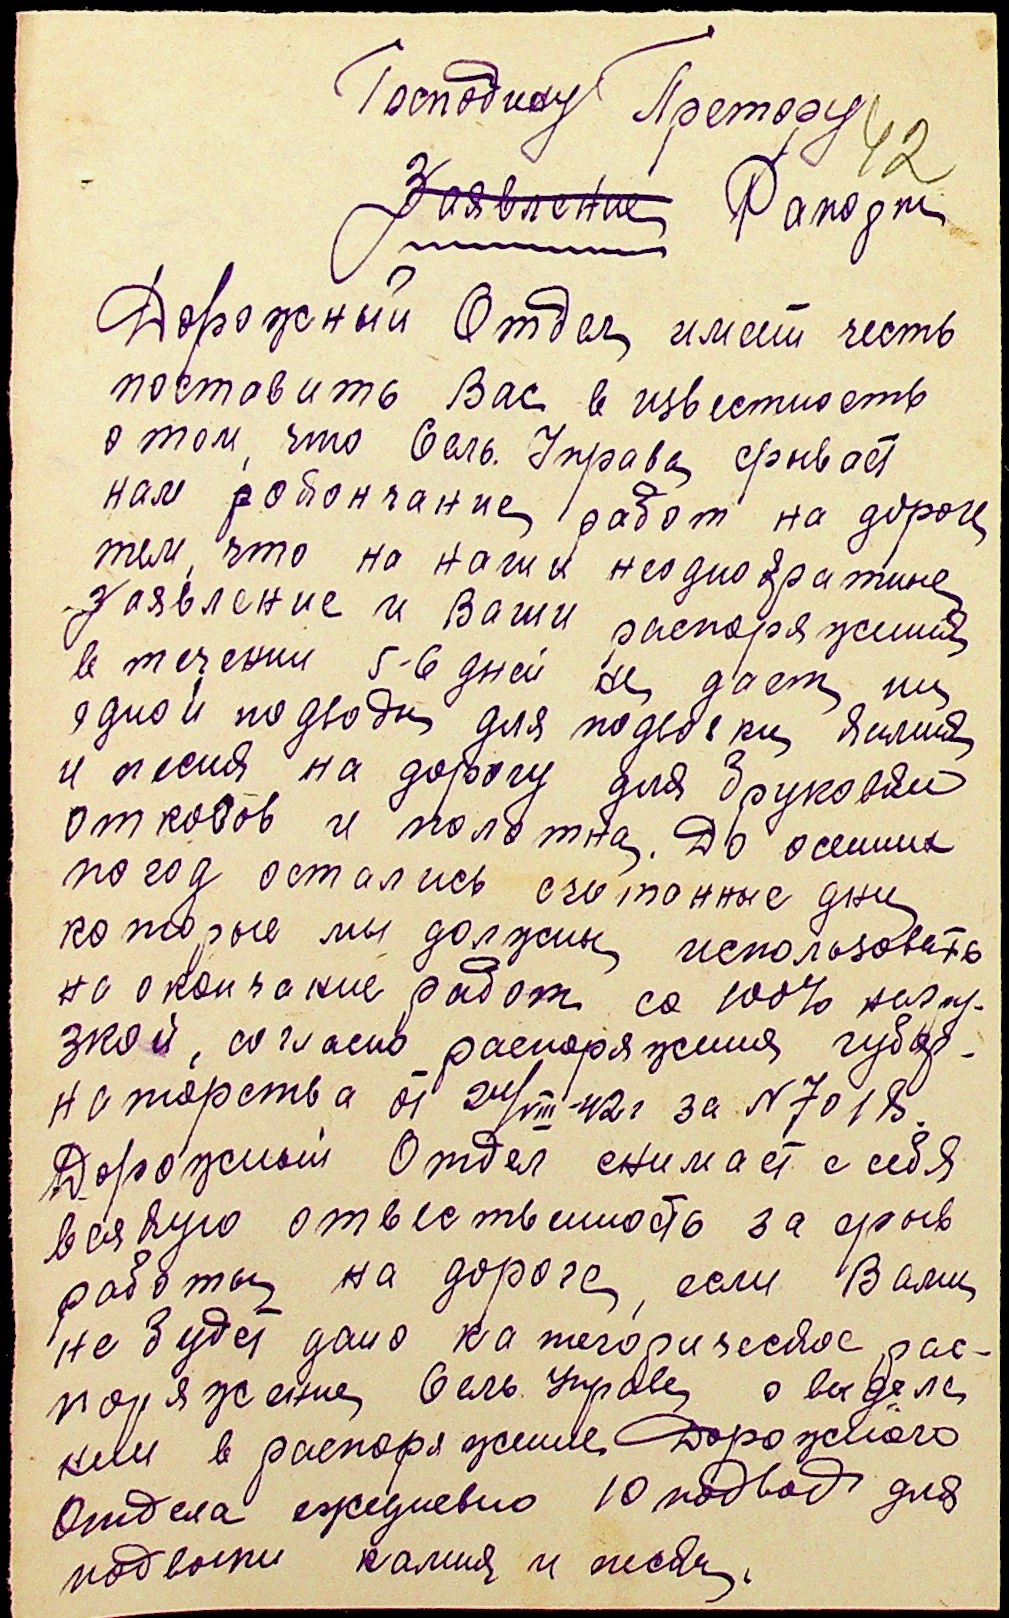 Господину Претору
42
Заявление Рапорт
Дорожный Отдел имеет честь
поставить Вас в известность
о том, что Сель. Управа срывает
нам работы на дороге
тем, что на наши неоднократные
заявление и Ваши распоряжения
в течении 5-6 дней не дает ни
одной подводы для подвозки камня
и песка на дорогу для бруковки
откосов и полотна. До осенних
погод остались считанные дни
которые мы должны использовать
на окончание работ со 100% нагру-
зкой, согласно распоряжения губер-
наторства от 24/VIII-42г за N7018.
Дорожный Отдел снимает с себя
всякую отвественность за срыв
работы на дороге, если Вами
не будет дано категорическое рас-
поряжение Сель. Управе о выделе
нии в распоряжение Дорожного
Отдела ежедневно 10 подвод для
подвозки камня и песка.